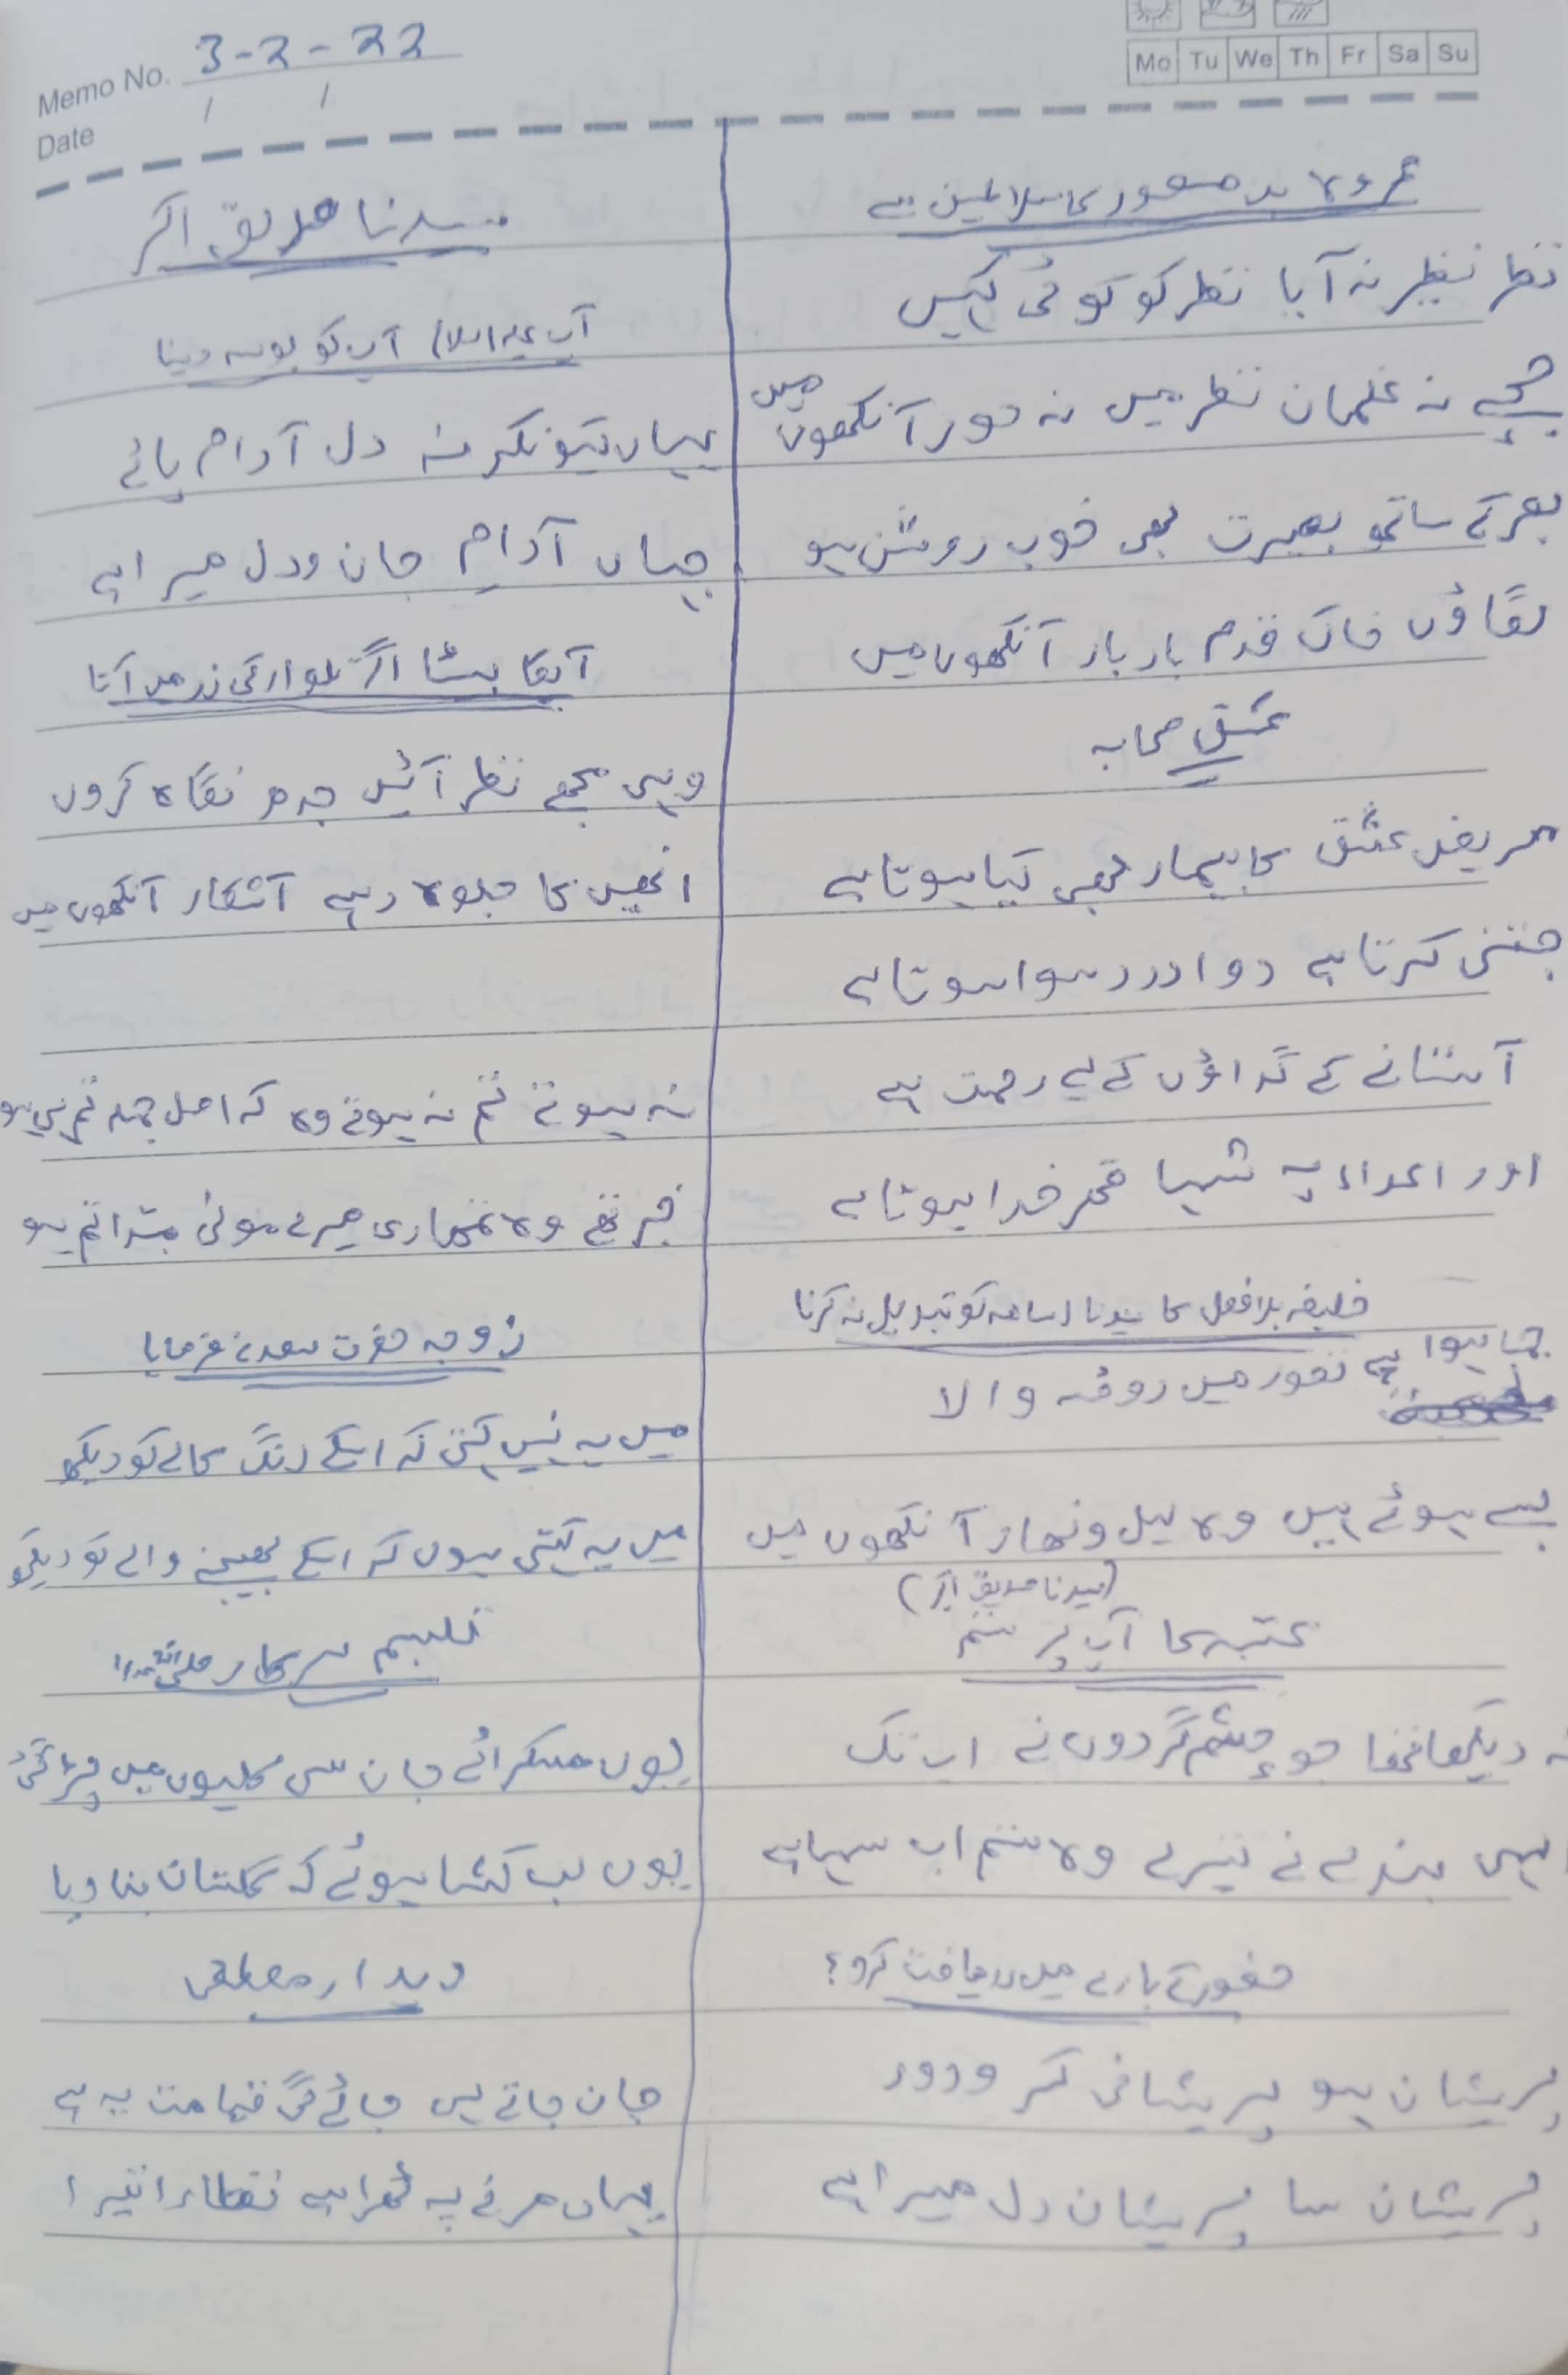 Memo No. 3-2-22
Date / /
Mo Tu We Th Fr Sa Su
نظر نظیر نہ آیا نظر کو کوئی کہیں
جچے نہ غلمان نظر میں نہ حور آنکھوں میں
بصر کے ساتھ بصیرت بھی خوب روشن ہو
لگاؤں خاک قدم بار بار آنکھوں میں
عشق صحابہ
مریض عشق کا بیمار بھی کیا ہوتا ہے
جتنی کرتا ہے دوا درد سوا ہوتا ہے
آستانے کے گداؤں کے لیے رحمت ہے
اور اعداء پہ شہا قہر خدا ہوتا ہے
خلیفہ بلا فصل کا سیدنا اسامہ کو تبدیل نہ کرنا
جما ہوا ہے تصور میں روضہ والا
بسے ہوئے ہیں وہ لیل و نہار آنکھوں میں
(سیدنا صدیق اکبر)
عتبہ کا آپ پر ستم
نہ دیکھا تھا جو چشم گردوں نے اب تک
اسی بندے نے تیرے وہ ستم اب سہا ہے
حضور کے بارے میں دریافت کرو؟
پریشان ہو پریشانی کر و دور
پریشان سا پریشان دل میرا ہے
سیدنا صدیق اکبر
آپ علیہ السلام آپ کو بوسہ دینا
یہاں کیونکر نہ دل آرام پائے
جہاں آرام جان و دل میرا ہے
آپکا بیٹا اگر تلوار کی زد میں آتا
وہی مجھے نظر آئیں جدھر نگاہ کروں
انھیں کا جلوہ رہے آشکار آنکھوں میں
نہ ہوتے تم نہ ہوتے وہ کہ اصل جملہ تم ہی ہو
خبر تھے وہ تمہاری میرے مولی مبتدا تم ہو
زوجہ حضرت سعد نے فرمایا
میں یہ نہیں کہتی کہ اسکے رنگ کالے کو دیکھ
میں یہ کہتی ہوں کہ اسکے بھیجنے والے کو دیکھ
تبسم سرکار صلی اللہ
یوں مسکرائے جان سی کلیوں میں پڑ گئی
یوں لب کشا ہوئے کہ گلستان بنا دیا
دیدار مصطفی
جان جاتے ہی جائے گی قیامت یہ ہے
یہاں مرنے پہ ٹھرا ہے نظارا تیرا